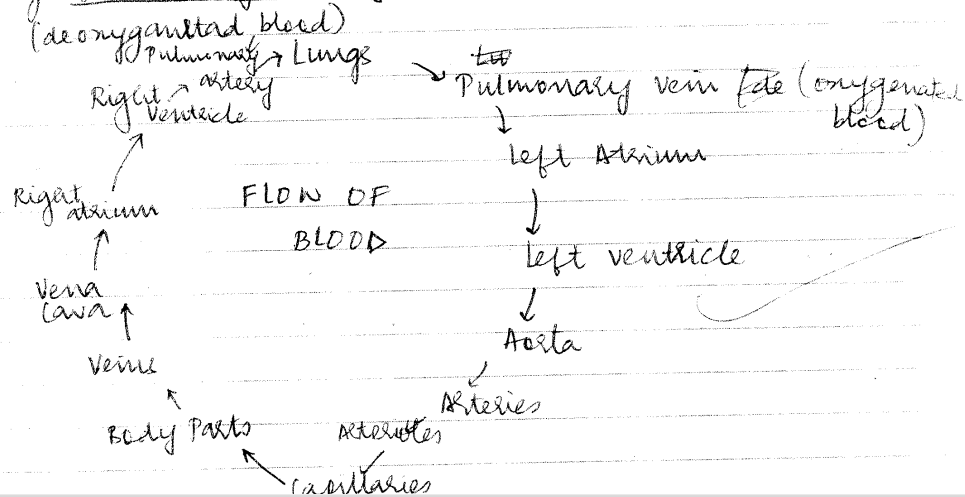 (deoxyganttad blood)
Pulmonary
artery
Lungs
Pulmonary vein (oxygenated
blood)
Right
ventricle
Left Atrium
Right
atrium
FLOW OF
BLOOD
Left ventricle
Vena
Cava
Aorta
Veins
Arteries
Body Parts
Arterioles
Capillaries